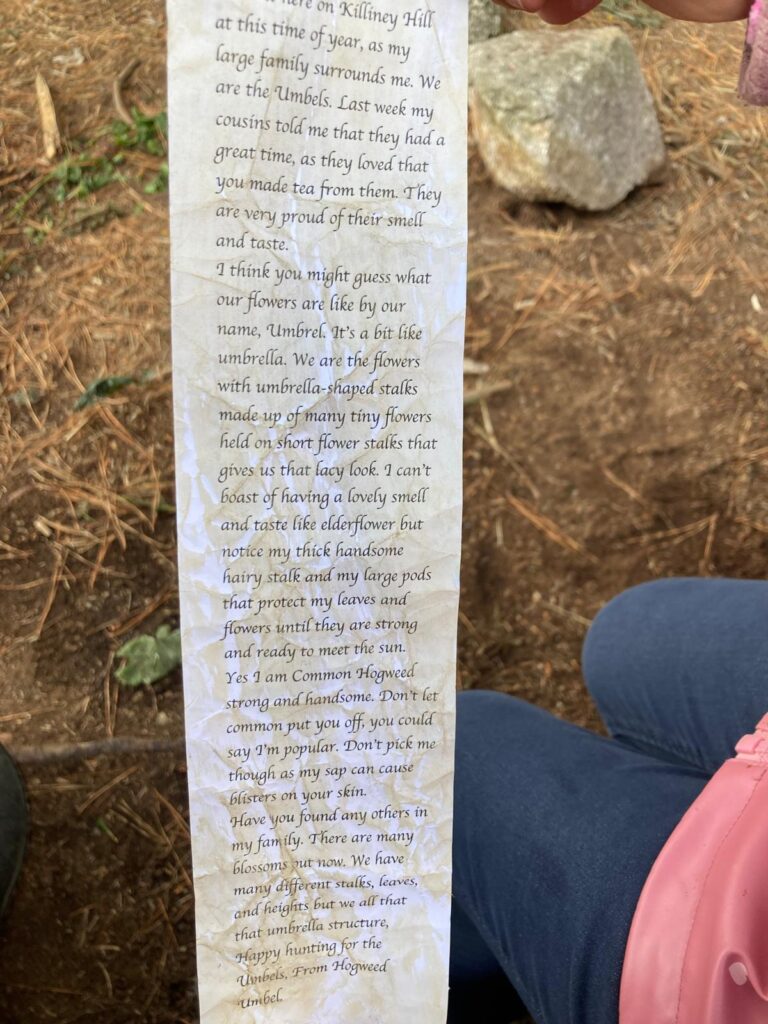 here on Killiney Hill
at this time of year, as my
large family surrounds me. We
are the Umbels. Last week my
cousins told me that they had a
great time, as they loved that
you made tea from them. They
are very proud of their smell
and taste.
I think you might guess what
our flowers are like by our
name, Umbrel. It's a bit like
umbrella. We are the flowers
with umbrella-shaped stalks
made up of many tiny flowers
held on short flower stalks that
gives us that lacy look. I can't
boast of having a lovely smell
and taste like elderflower but
notice my thick handsome
hairy stalk and my large pods
that protect my leaves and
flowers until they are strong
and ready to meet the sun.
Yes I am Common Hogweed
strong and handsome. Don't let
common put you off, you could
say I'm popular. Don't pick me
though as my sap can cause
blisters on your skin.
Have you found any others in
my family. There are many
blossoms out now. We have
many different stalks, leaves,
and heights but we all that
that umbrella structure,
Happy hunting for the
Umbels. From Hogweed
Umbel.